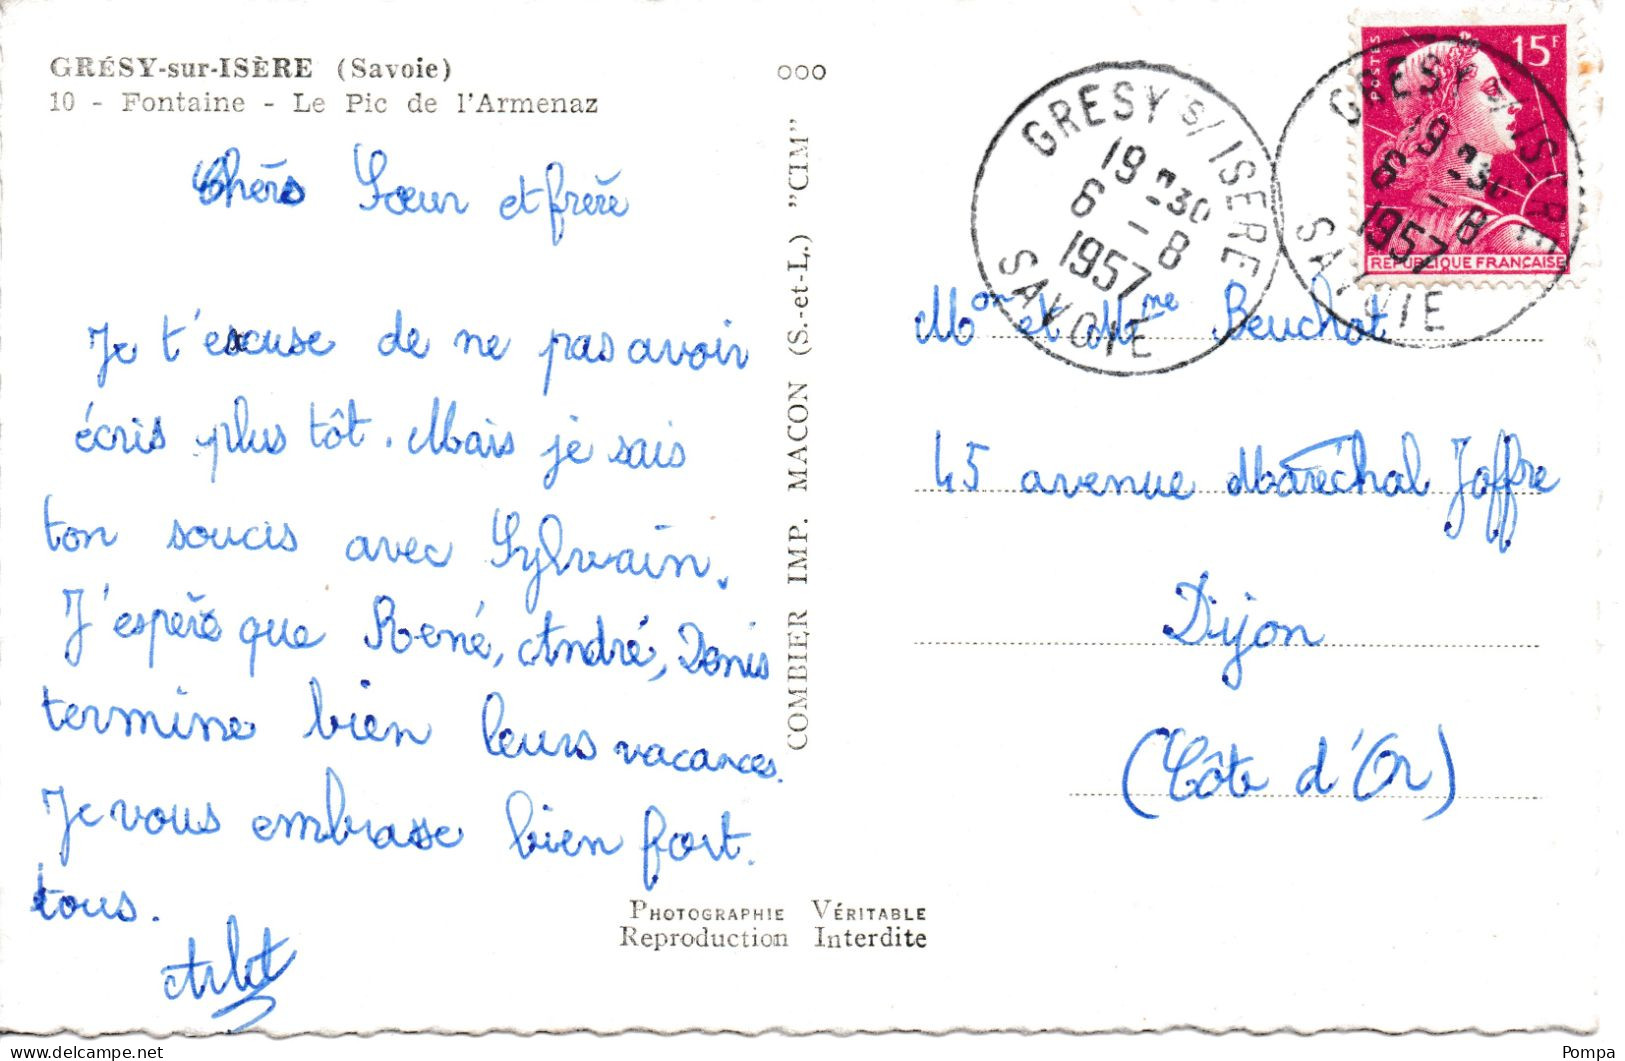 GRÉSY-sur-ISÈRE (Savoie)
10 - Fontaine - Le Pic de l'Armenaz
Chèrs Sœur et frère
Je t'escuse de ne pas avoir
écris plus tôt. Mais je sais
ton soucis avec Sylvain.
J'espère que René, André, Denis
termine bien leurs vacances.
Je vous embrasse bien fort.
tous.
000
COMBIER IMP. MACON (S.-et-L.) "CIM"
PHOTOGRAPHIE VÉRITABLE
Reproduction Interdite
GRESY S/ ISERE
19 H 30
6 - 8
1957
SAVOIE
POSTES
15F
REPUBLIQUE FRANÇAISE
GRESY S/ ISERE
19 H 30
6 - 8
1957
SAVOIE
Mon et Mme Beuchot
45 avenue Maréchal Joffre
Dijon
(Côte d'Or)
Pompa